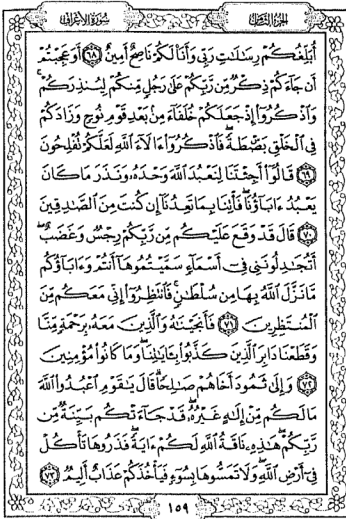 الجزء الثامن
سورة الأعراف
أُبَلِّغُكُمْ رِسَٰلَٰتِ رَبِّى وَأَنَا۠ لَكُمْ نَاصِحٌ أَمِينٌ ﴿٦٨﴾ أَوَعَجِبْتُمْ
أَن جَآءَكُمْ ذِكْرٌ مِّن رَّبِّكُمْ عَلَىٰ رَجُلٍ مِّنكُمْ لِيُنذِرَكُمْ ۚ
وَٱذْكُرُوٓا۟ إِذْ جَعَلَكُمْ خُلَفَآءَ مِنۢ بَعْدِ قَوْمِ نُوحٍ وَزَادَكُمْ
فِى ٱلْخَلْقِ بَصْۜطَةً ۖ فَٱذْكُرُوٓا۟ ءَالَآءَ ٱللَّهِ لَعَلَّكُمْ تُفْلِحُونَ
﴿٦٩﴾ قَالُوٓا۟ أَجِئْتَنَا لِنَعْبُدَ ٱللَّهَ وَحْدَهُۥ وَنَذَرَ مَا كَانَ
يَعْبُدُ ءَابَآؤُنَا ۖ فَأْتِنَا بِمَا تَعِدُنَآ إِن كُنتَ مِنَ ٱلصَّٰدِقِينَ
﴿٧٠﴾ قَالَ قَدْ وَقَعَ عَلَيْكُم مِّن رَّبِّكُمْ رِجْسٌ وَغَضَبٌ ۖ
أَتُجَٰدِلُونَنِى فِىٓ أَسْمَآءٍ سَمَّيْتُمُوهَآ أَنتُمْ وَءَابَآؤُكُم
مَّا نَزَّلَ ٱللَّهُ بِهَا مِن سُلْطَٰنٍ ۚ فَٱنتَظِرُوٓا۟ إِنِّى مَعَكُم مِّنَ
ٱلْمُنتَظِرِينَ ﴿٧١﴾ فَأَنجَيْنَٰهُ وَٱلَّذِينَ مَعَهُۥ بِرَحْمَةٍ مِّنَّا
وَقَطَعْنَا دَابِرَ ٱلَّذِينَ كَذَّبُوا۟ بِـَٔايَٰتِنَا ۖ وَمَا كَانُوا۟ مُؤْمِنِينَ
﴿٧٢﴾ وَإِلَىٰ ثَمُودَ أَخَاهُمْ صَٰلِحًا ۗ قَالَ يَٰقَوْمِ ٱعْبُدُوا۟ ٱللَّهَ
مَا لَكُم مِّنْ إِلَٰهٍ غَيْرُهُۥ ۖ قَدْ جَآءَتْكُم بَيِّنَةٌ مِّن
رَّبِّكُمْ ۖ هَٰذِهِۦ نَاقَةُ ٱللَّهِ لَكُمْ ءَايَةً ۖ فَذَرُوهَا تَأْكُلْ
فِىٓ أَرْضِ ٱللَّهِ ۖ وَلَا تَمَسُّوهَا بِسُوٓءٍ فَيَأْخُذَكُمْ عَذَابٌ أَلِيمٌ ﴿٧٣﴾
١٥٩